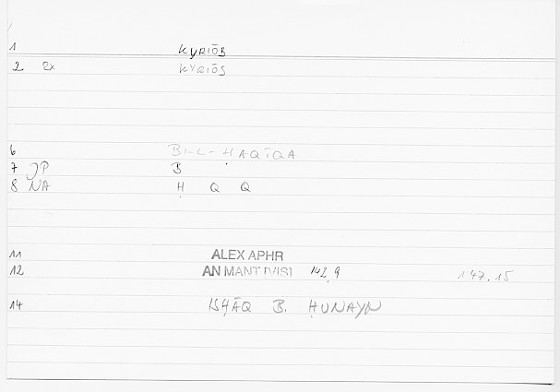 1 KYRIŌS
2 2x KYRIŌS
6 BI-L-ḤAQĪQA
7 JP B
8 NA Ḥ Q Q
11 ALEX APHR
12 AN MANT IVISI 142,9 147.15
14 ISḤĀQ B. ḤUNAYN